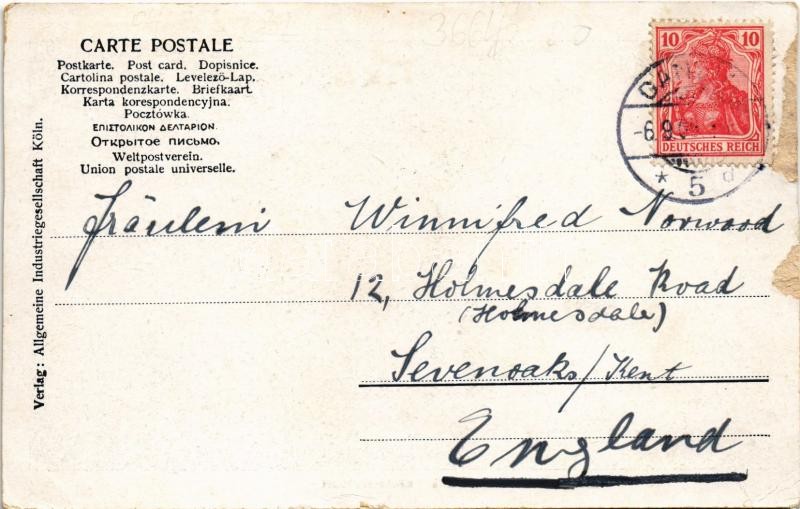 CARTE POSTALE
Postkarte. Post card. Dopisnice.
Cartolina postale. Levelező-Lap.
Korrespondenzkarte. Briefkaart.
Karta korespondencyjna.
Pocztówka.
ΕΠΙΣΤΟΛΙΚΟΝ ΔΕΛΤΑΡΙΟΝ.
Открытое письмо.
Weltpostverein.
Union postale universelle.
Verlag: Allgemeine Industriegesellschaft Köln.
10 10
DEUTSCHES REICH
* 5 d
Fräulein Winnifred Norwood
12, Holmesdale Road
(Holmesdale)
Sevenoaks/Kent
England